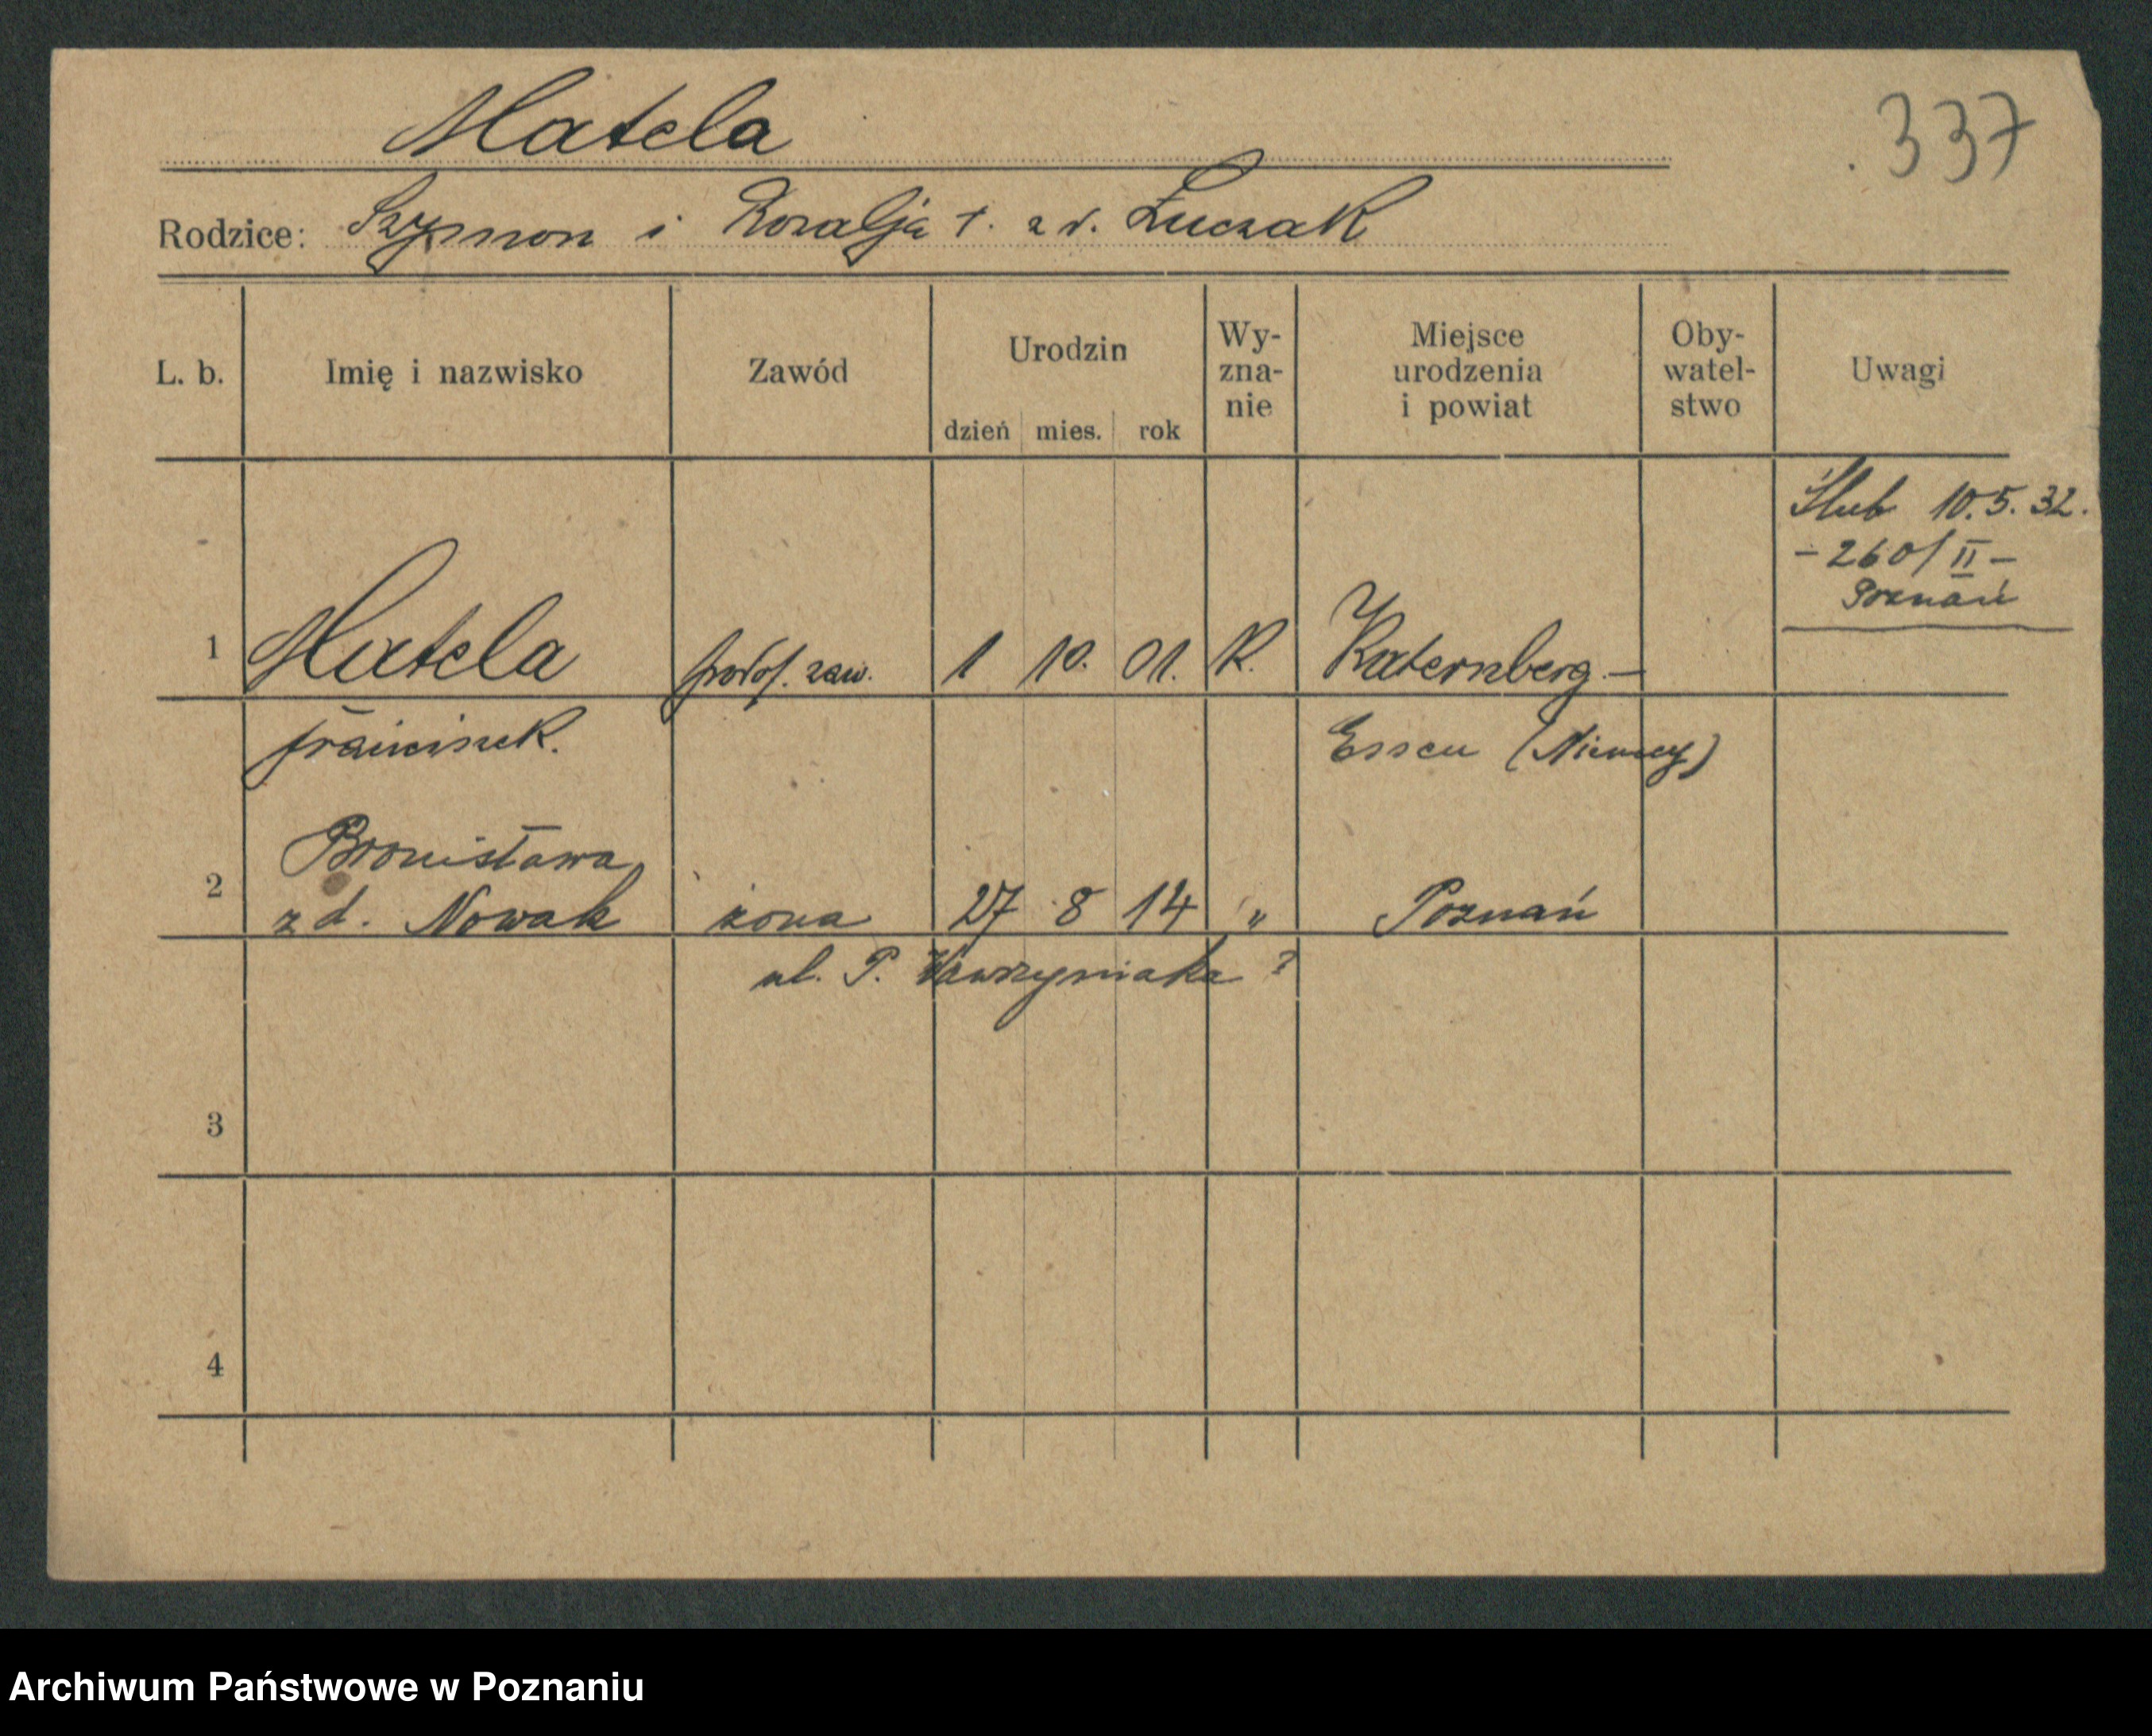 Matela
337
Rodzice: Szymon i Rozalja †. z d. Łuczak
L. b. Imię i nazwisko Zawód Urodzin Wy- Miejsce Oby- Uwagi
zna- urodzenia watel-
nie i powiat stwo
dzień mies. rok
Ślub 10.5.32.
- 260/II -
Poznań
1 Matela podof. zaw. 1 10. 01. K. Katernberg -
Franciszek. Essen (Niemcy)
Bronisława
2 z d. Nowak żona 27 8 14 " Poznań
ul. P. Wawrzyniaka ?
3
4
Archiwum Państwowe w Poznaniu